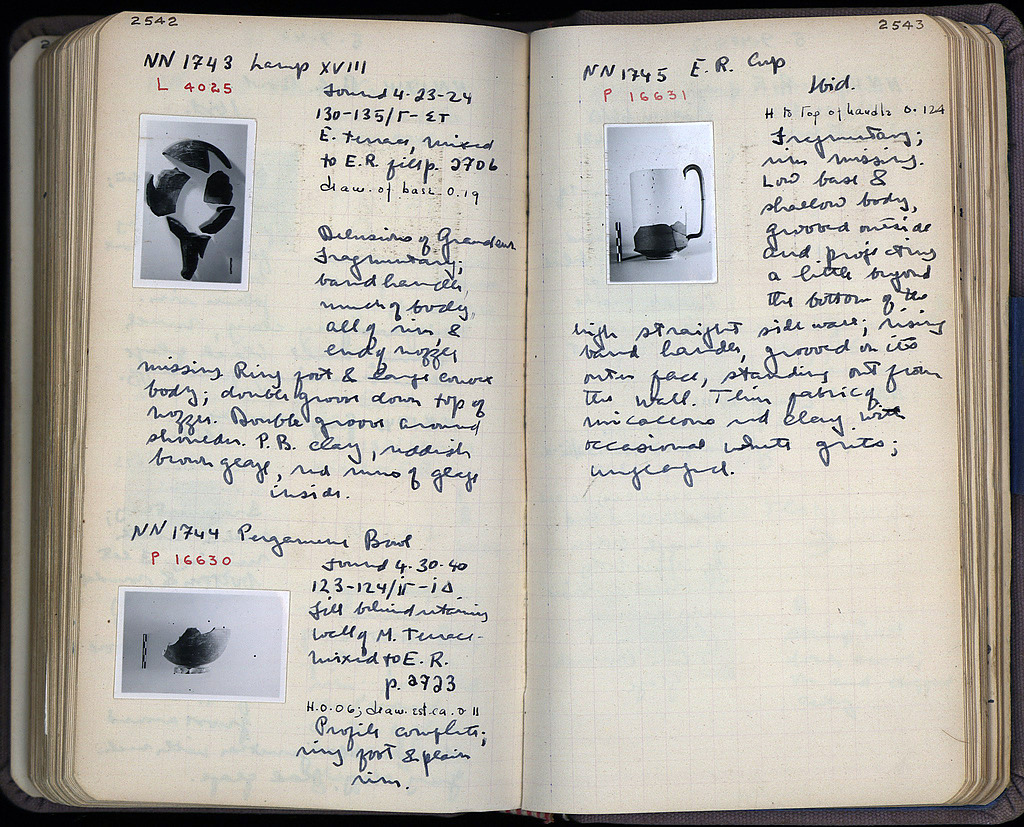 2542
NN 1743 Lamp XVIII
L 4025
Found 4-23-24
130-135/Γ-ΣΤ
E. Terrace, mixed
to E.R. fill p. 2706
diam. of base 0.19
Delusions of Grandeur
Fragmentary;
band handle,
much of body,
all of rim, &
end of nozzle
missing. Ring foot & large convex
body; double groove down top of
nozzle. Double groove around
shoulder. P.B. clay, reddish
brown glaze, red runs of glaze
inside.
NN 1744 Pergamene Bowl
P 16630
Found 4-30-40
123-124/ΙΓ-ΙΔ
Fill behind retaining
wall of M. Terrace-
mixed to E.R.
p. 2723
H. 0.06; diam. est. ca. 0.11
Profile complete;
ring foot & plain
rim.
2543
NN 1745 E.R. Cup
P 16631
Ibid.
H to top of handle 0.124
Fragmentary;
rim missing.
Low base &
shallow body,
grooved outside
and projecting
a little beyond
the bottom of the
high straight side wall; rising
band handle, grooved on its
outer face, standing out from
the wall. Thin fabric of
micaceous red clay with
occasional white grits;
unglazed.